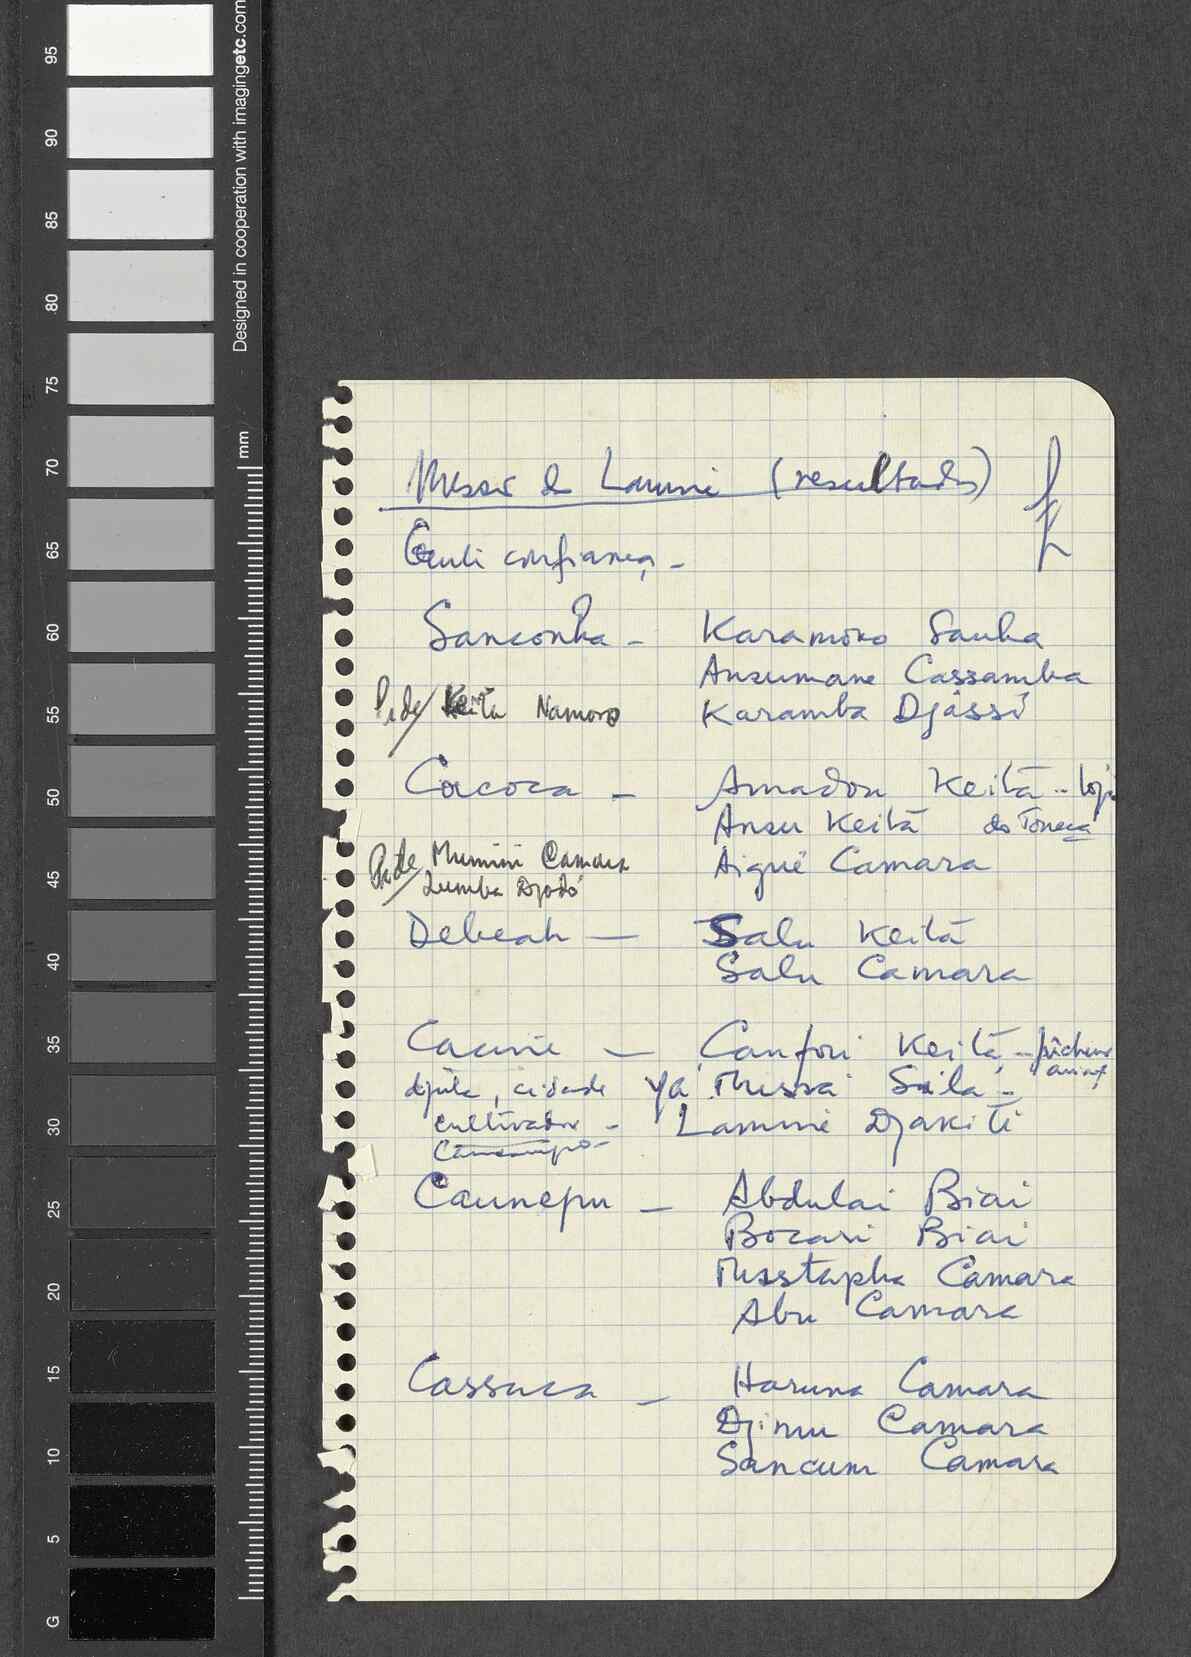 95
90
85
80
75
70
65
60
55
50
45
40
35
30
25
20
15
10
5
G
Designed in cooperation with imagingetc.com
mm
de Lamine (resultados)
confiança -
Sanconha - Karamoko Sanha
Ansumane Cassamba
Pide/ Keitá Namoro Karamba Djassi
Cacoca - Amadou Keitá -
Ansu Keitá do
Pide/ Mumini Camara Aigué Camara
Lumba Djodó
Debeah - Salu Keitá
Salu Camara
Cacine - Canfori Keitá -
djila, cidade Yá Mussá Seila -
cultivador - Lamine Djakité
Caunepu - Abdulai Biai
Bocari Biai
Musstapha Camara
Abu Camara
Cassaca - Haruna Camara
Djimu Camara
Sancum Camara